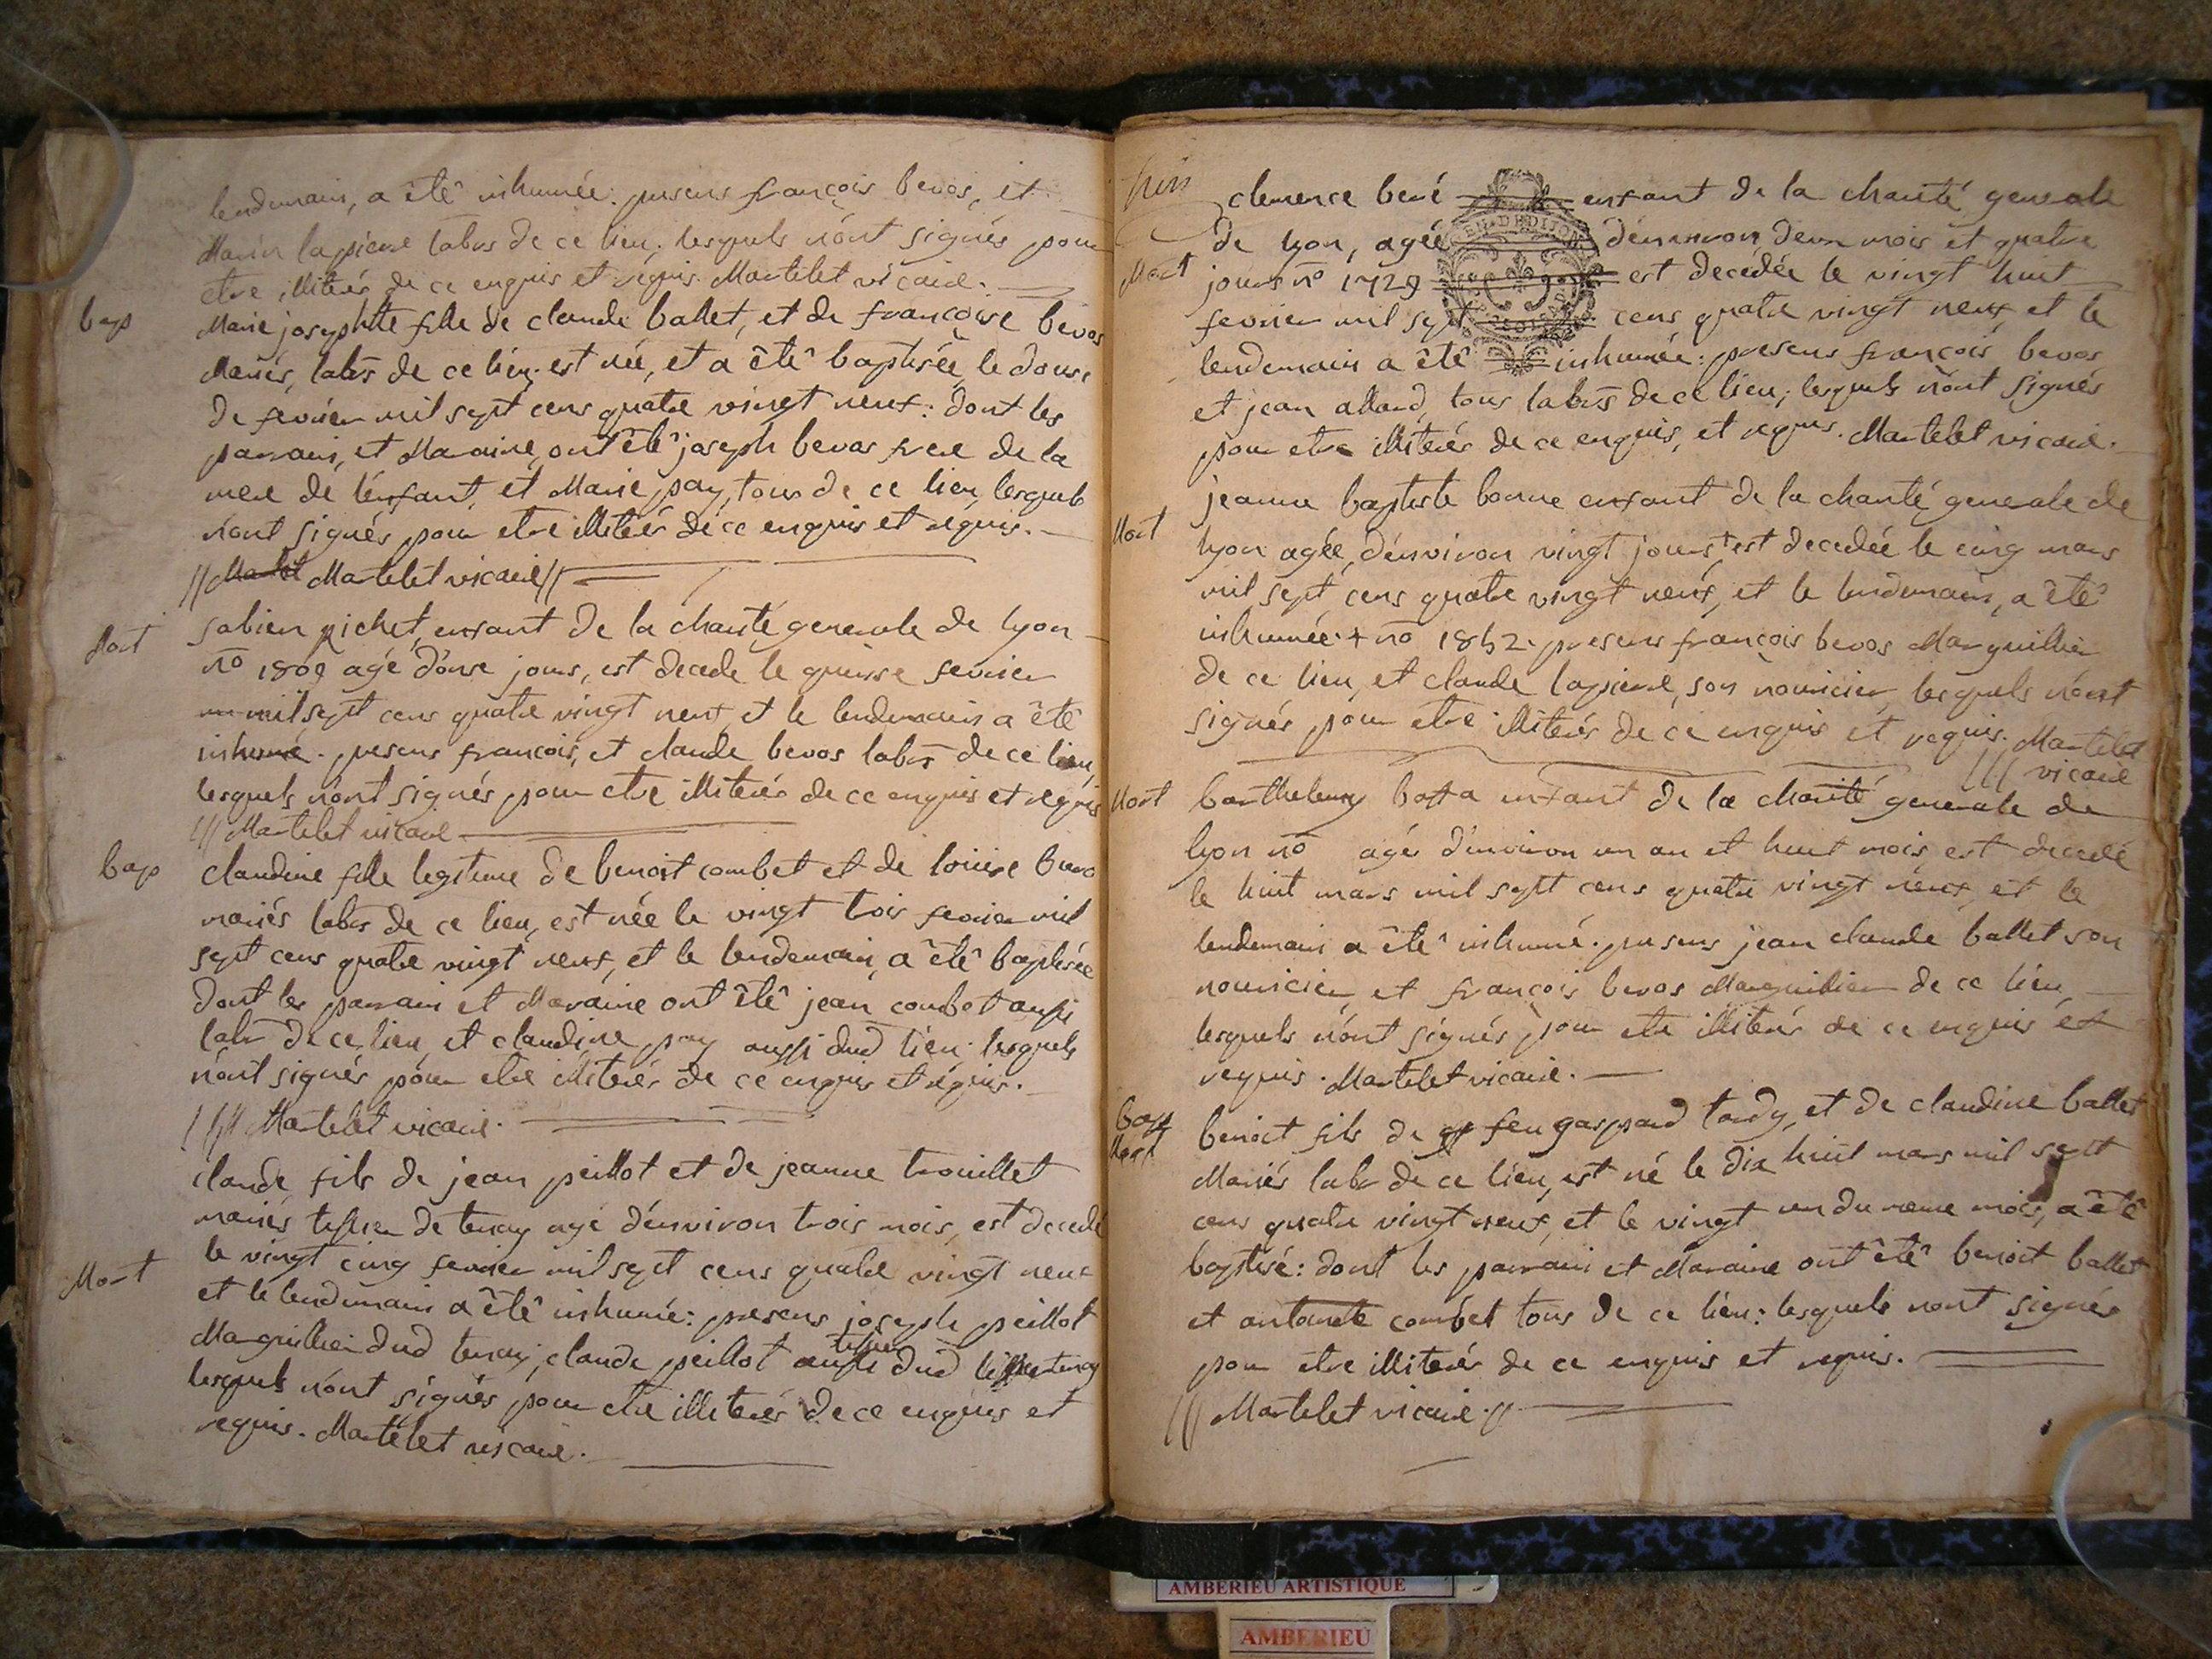 lendemain, a êtê inhumée: presens françois bevos, et
Marin lapierre labrs de ce lieu. lesquels n'ont signés pour
etre illiterés de ce enquis et réquis. Martelet vicaire.
bap
Marie josephte fille de claude ballet, et de françoise bevos
Mariés, labrs de ce lieu, est née, et a êtê baptisée le douse
de fevrier mil sept cens quatre vingt neuf: dont les
parrain, et Maraine, ont êtê joseph bevos frere de la
mere de l'enfant, et Marie pay, tous de ce lieu, lesquels
n'ont signés pour etre illiterés de ce enquis et réquis.
Martelet vicaire
Mort
sabien pichet, enfant de la charité generale de lyon
no 1809 agé d'onse jours, est decede le quinse fevrier
mil sept cens quatre vingt neuf, et le lendemain a êtê
inhumé. presens françois, et claude bevos labrs de ce lieu,
lesquels n'ont signés pour etre illiterés de ce enquis et requis
Martelet vicaire
bap
claudine fille legitime de benoit combet et de louise bevo
mariés labrs de ce lieu, est née le vingt trois fevrier mil
sept cens quatre vingt neuf, et le lendemain, a êtê baptisée
dont les parrain et Maraine ont êtê jean combet aussi
labr de ce lieu, et claudine pay aussi dud lieu. lesquels
n'ont signés pour etre illiterés de ce enquis et réquis.
Martelet vicaire.
claude fils de jean peillot et de jeanne trouillet
mariés de tenay agé d'environ trois mois, est decedé
Mort
le vingt cinq fevrier mil sept cens quatre vingt neuf
et le lendemain a êtê inhumé: presens joseph peillot
Marguillier dud tenay, claude peillot dud tenay
lesquels n'ont signés pour etre illiterés de ce enquis et
requis. Martelet vicaire.
clemence bevé enfant de la charité generale
de lyon, agée d'environ deux mois et quatre
Mort
jours no 1729 est decédée le vingt huit
fevrier mil sept cens quatre vingt neuf et le
lendemain a êtê inhumée: presens françois bevos
et jean allard, tous labrs de ce lieu; lesquels n'ont signés
pour etre illiterés de ce enquis, et requis. Martelet vicaire.
jeanne baptiste bonne enfant de la charité generale de
Mort
lyon agée d'environ vingt jours + est decedée le cinq mars
mil sept cens quatre vingt neuf, et le lendemain, a êtê
inhumée. + no 1852. presens françois bevos Marguillier
de ce lieu, et claude lapierre, son nouricier, lesquels n'ont
signés pour etre illiterés de ce enquis et requis. Martelet
vicaire
Mort
barthelemy botta enfant de la charité generale de
lyon no agé d'environ un an et huit mois, est decedé
le huit mars mil sept cens quatre vingt neuf, et le
lendemain a êtê inhumé. presens jean claude ballet son
nouricier, et françois bevos Marguillier de ce lieu,
lesquels n'ont signés pour etre illiterés de ce enquis et
requis. Martelet vicaire.
bap
Mort
benoit fils de feu gaspard tardy, et de claudine ballet
Mariés labr de ce lieu, est né le dix huit mars mil sept
cens quatre vingt neuf, et le vingt un du meme mois, a êtê
baptisé: dont les parrain et Maraine ont êtê benoit ballet
et antoinete combet tous de ce lieu: lesquels n'ont signés
pour etre illiterés de ce enquis et requis.
Martelet vicaire.
AMBERIEU ARTISTIQUE
AMBERIEU